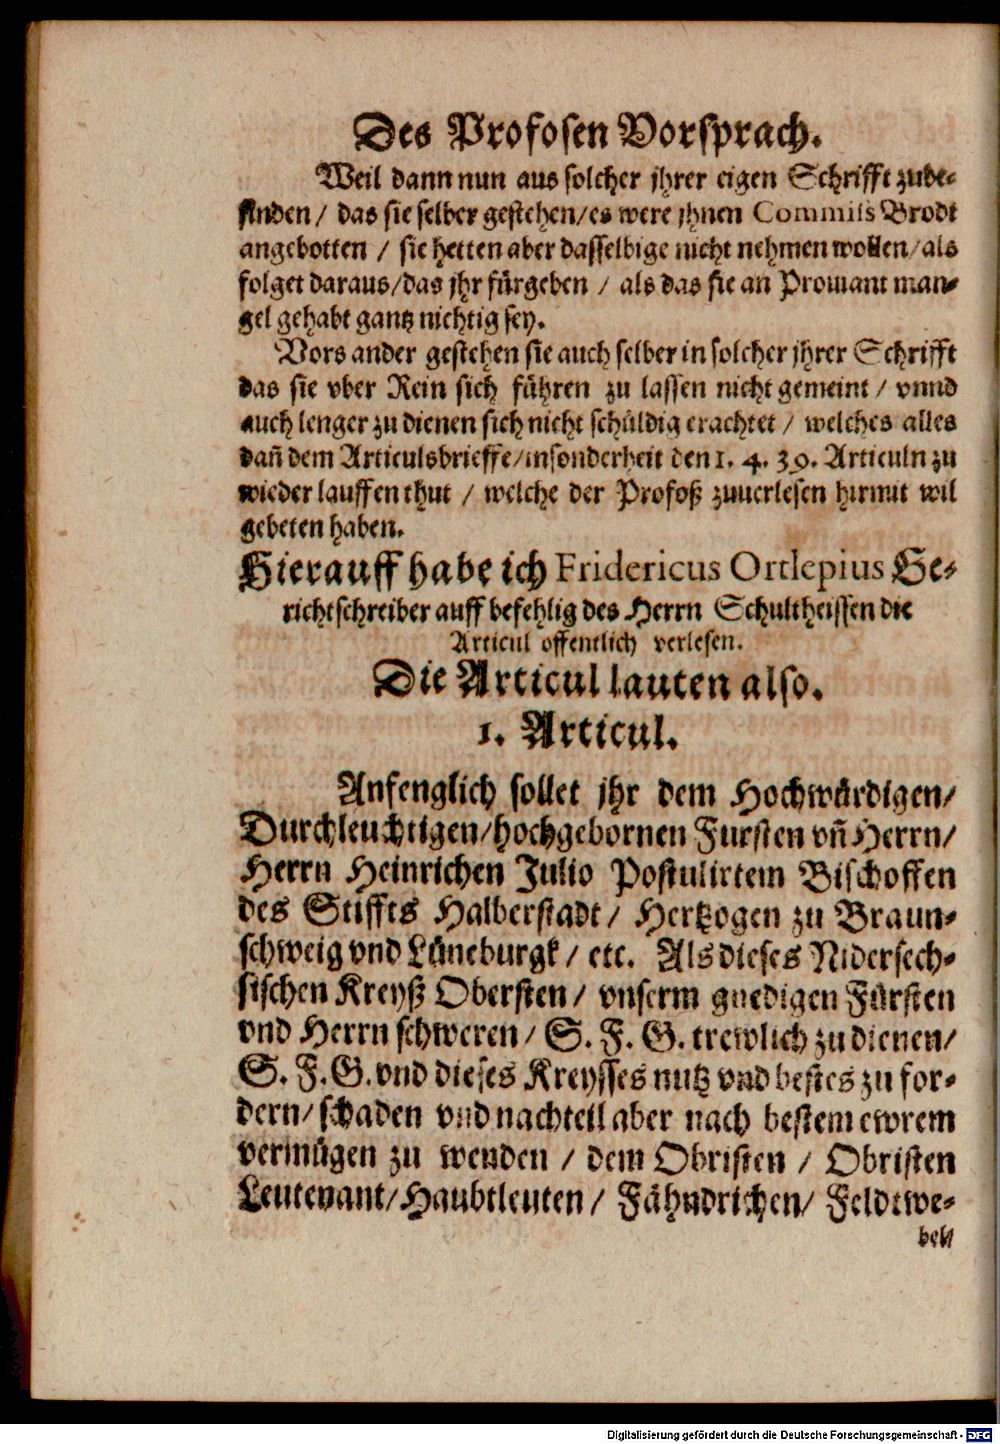 Des Profosen Vorsprach.
Weil dann nun aus solcher jhrer eigen Schrifft zube-
finden / das sie selber gestehen/es were jhnen Commiss Brodt
angebotten / sie hetten aber dasselbige nicht nehmen wollen/als
folget daraus/das jhr fürgeben / als das sie an Prouiant man-
gel gehabt gantz nichtig sey.
Vors ander gestehen sie auch selber in solcher jhrer Schrifft
das sie vber Rein sich führen zu lassen nicht gemeint / vnnd
auch lenger zu dienen sich nicht schüldig erachtet / welches alles
dañ dem Articulsbrieffe/insonderheit den 1. 4. 39. Articuln zu
wieder lauffen thut / welche der Profoß zuuerlesen hirmit wil
gebeten haben.
Hierauff habe ich Fridericus Ortlepius Ge-
richtschreiber auff befehlig des Herrn Schultheissen die
Articul offentlich verlesen.
Die Articul lauten also.
1. Articul.
Anfenglich sollet jhr dem Hochwürdigen/
Durchleuchtigen/hochgebornen Fursten vñ Herrn/
Herrn Heinrichen Julio Postulirtem Bischoffen
des Stiffts Halberstadt / Hertzogen zu Braun-
schweig vnd Lüneburgk / etc. Als dieses Nidersech-
sischen Kreyß Obersten / vnserm gnedigen Fürsten
vnd Herrn schweren / S. F. G. trewlich zu dienen/
S. F. G. vnd dieses Kreysses nutz vnd bestes zu for-
dern/schaden vnd nachteil aber nach bestem ewrem
vermügen zu wenden / dem Obristen / Obristen
Leutenant/Haubtleuten / Fähndrichen/ Feldtwe-
beln
Digitalisierung gefördert durch die Deutsche Forschungsgemeinschaft - DFG